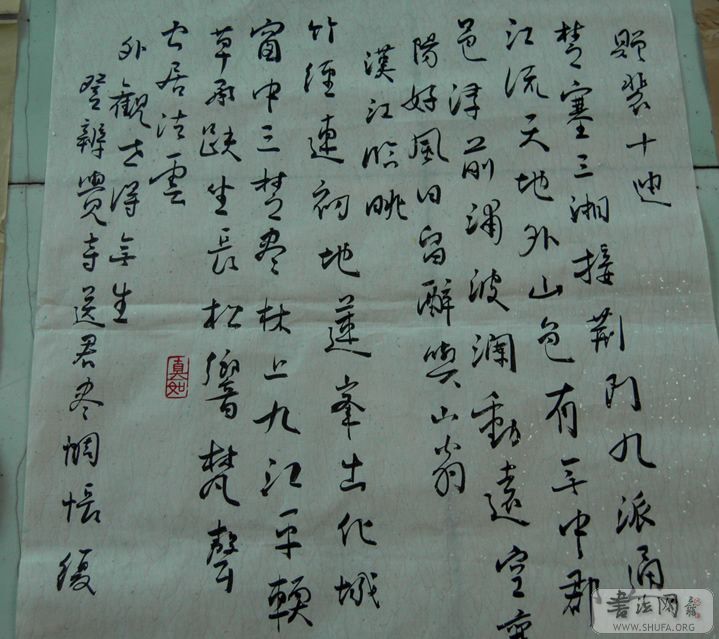 贈裴十迪
楚塞三湘接荆门九派通
江流天地外山色有無中郡
邑浮前浦波瀾動遠空襄
陽好風日留醉與山翁
漢江臨眺
竹徑連初地蓮峯出化城
窗中三楚尽林上九江平輭
草承趺坐長松響梵聲
空居法雲
外觀世得無生
登辨覺寺送君尽惆悵復
真如
书法网
WWW.SHUFA.ORG